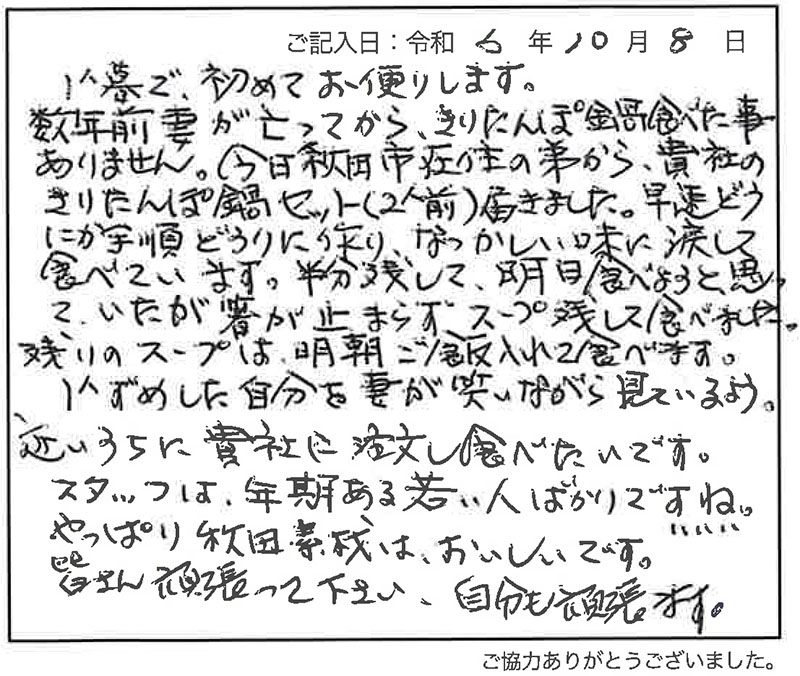 ご記入日：令和 6 年 10 月 8 日
1人暮で、初めてお便りします。
数年前妻が亡ってから、きりたんぽ鍋食べた事
ありません。今日秋田市在住の弟から、貴社の
きりたんぽ鍋セット(2人前)届きました。早速どう
にか手順どうりに作り、なつかしい味に涙して
食べています。半分残して、明日食べようと、思っ
て、いたが箸が止まらず、スープ残して食べました。
残りのスープは、明朝ご飯入れて食べます。
1人ずめした自分を妻が笑いながら見ているよう。
近いうちに貴社に注文し食べたいです。
スタッフは、年期ある若い人ばかりですね。
やっぱり秋田素材は、おいしいです。
皆さん頑張って下さい、自分も頑張ます。
ご協力ありがとうございました。